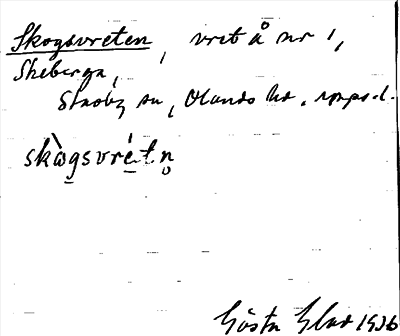 Skogsvreten, vret å nr 1,
Skeberga,
Skåby sn, Olands hd, Uppsala l.
skògsvrétn
Gösta Elas 1936